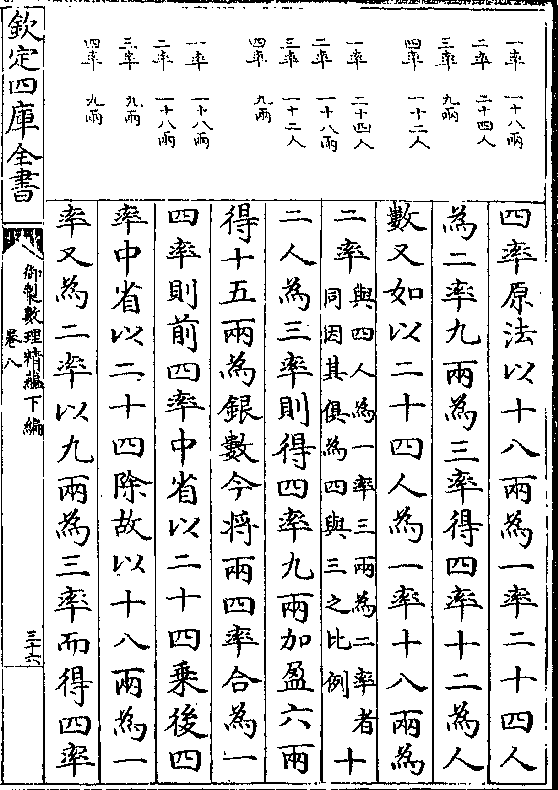 一率　一十八兩
二率　二十四人
三率　九兩
四率　一十二人
一率　二十四人
二率　一十八兩
三率　一十二人
四率　九兩
一率　一十八兩
二率　一十八兩
三率　九兩
四率　九兩
四率原法以十八兩為一率二十四人
為二率九兩為三率得四率十二為人
數又如以二十四人為一率十八兩為
二率與四人為一率三兩為二率者同因其俱為四與三之比例十
二人為三率則得四率九兩加盈六兩
得十五兩為銀數今將兩四率合為一
四率則前四率中省以二十四乘後四
率中省以二十四除故以十八兩為一
率又為二率以九兩為三率而得四率
欽定四庫全書
御製數理精蘊下編
卷八
三十六